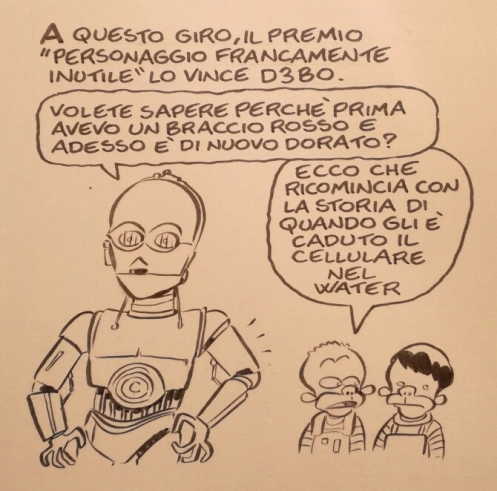 A QUESTO GIRO, IL PREMIO
"PERSONAGGIO FRANCAMENTE
INUTILE" LO VINCE D3BO.
VOLETE SAPERE PERCHÈ PRIMA
AVEVO UN BRACCIO ROSSO E
ADESSO È DI NUOVO DORATO?
ECCO CHE
RICOMINCIA CON
LA STORIA DI
QUANDO GLI È
CADUTO IL
CELLULARE
NEL
WATER
C